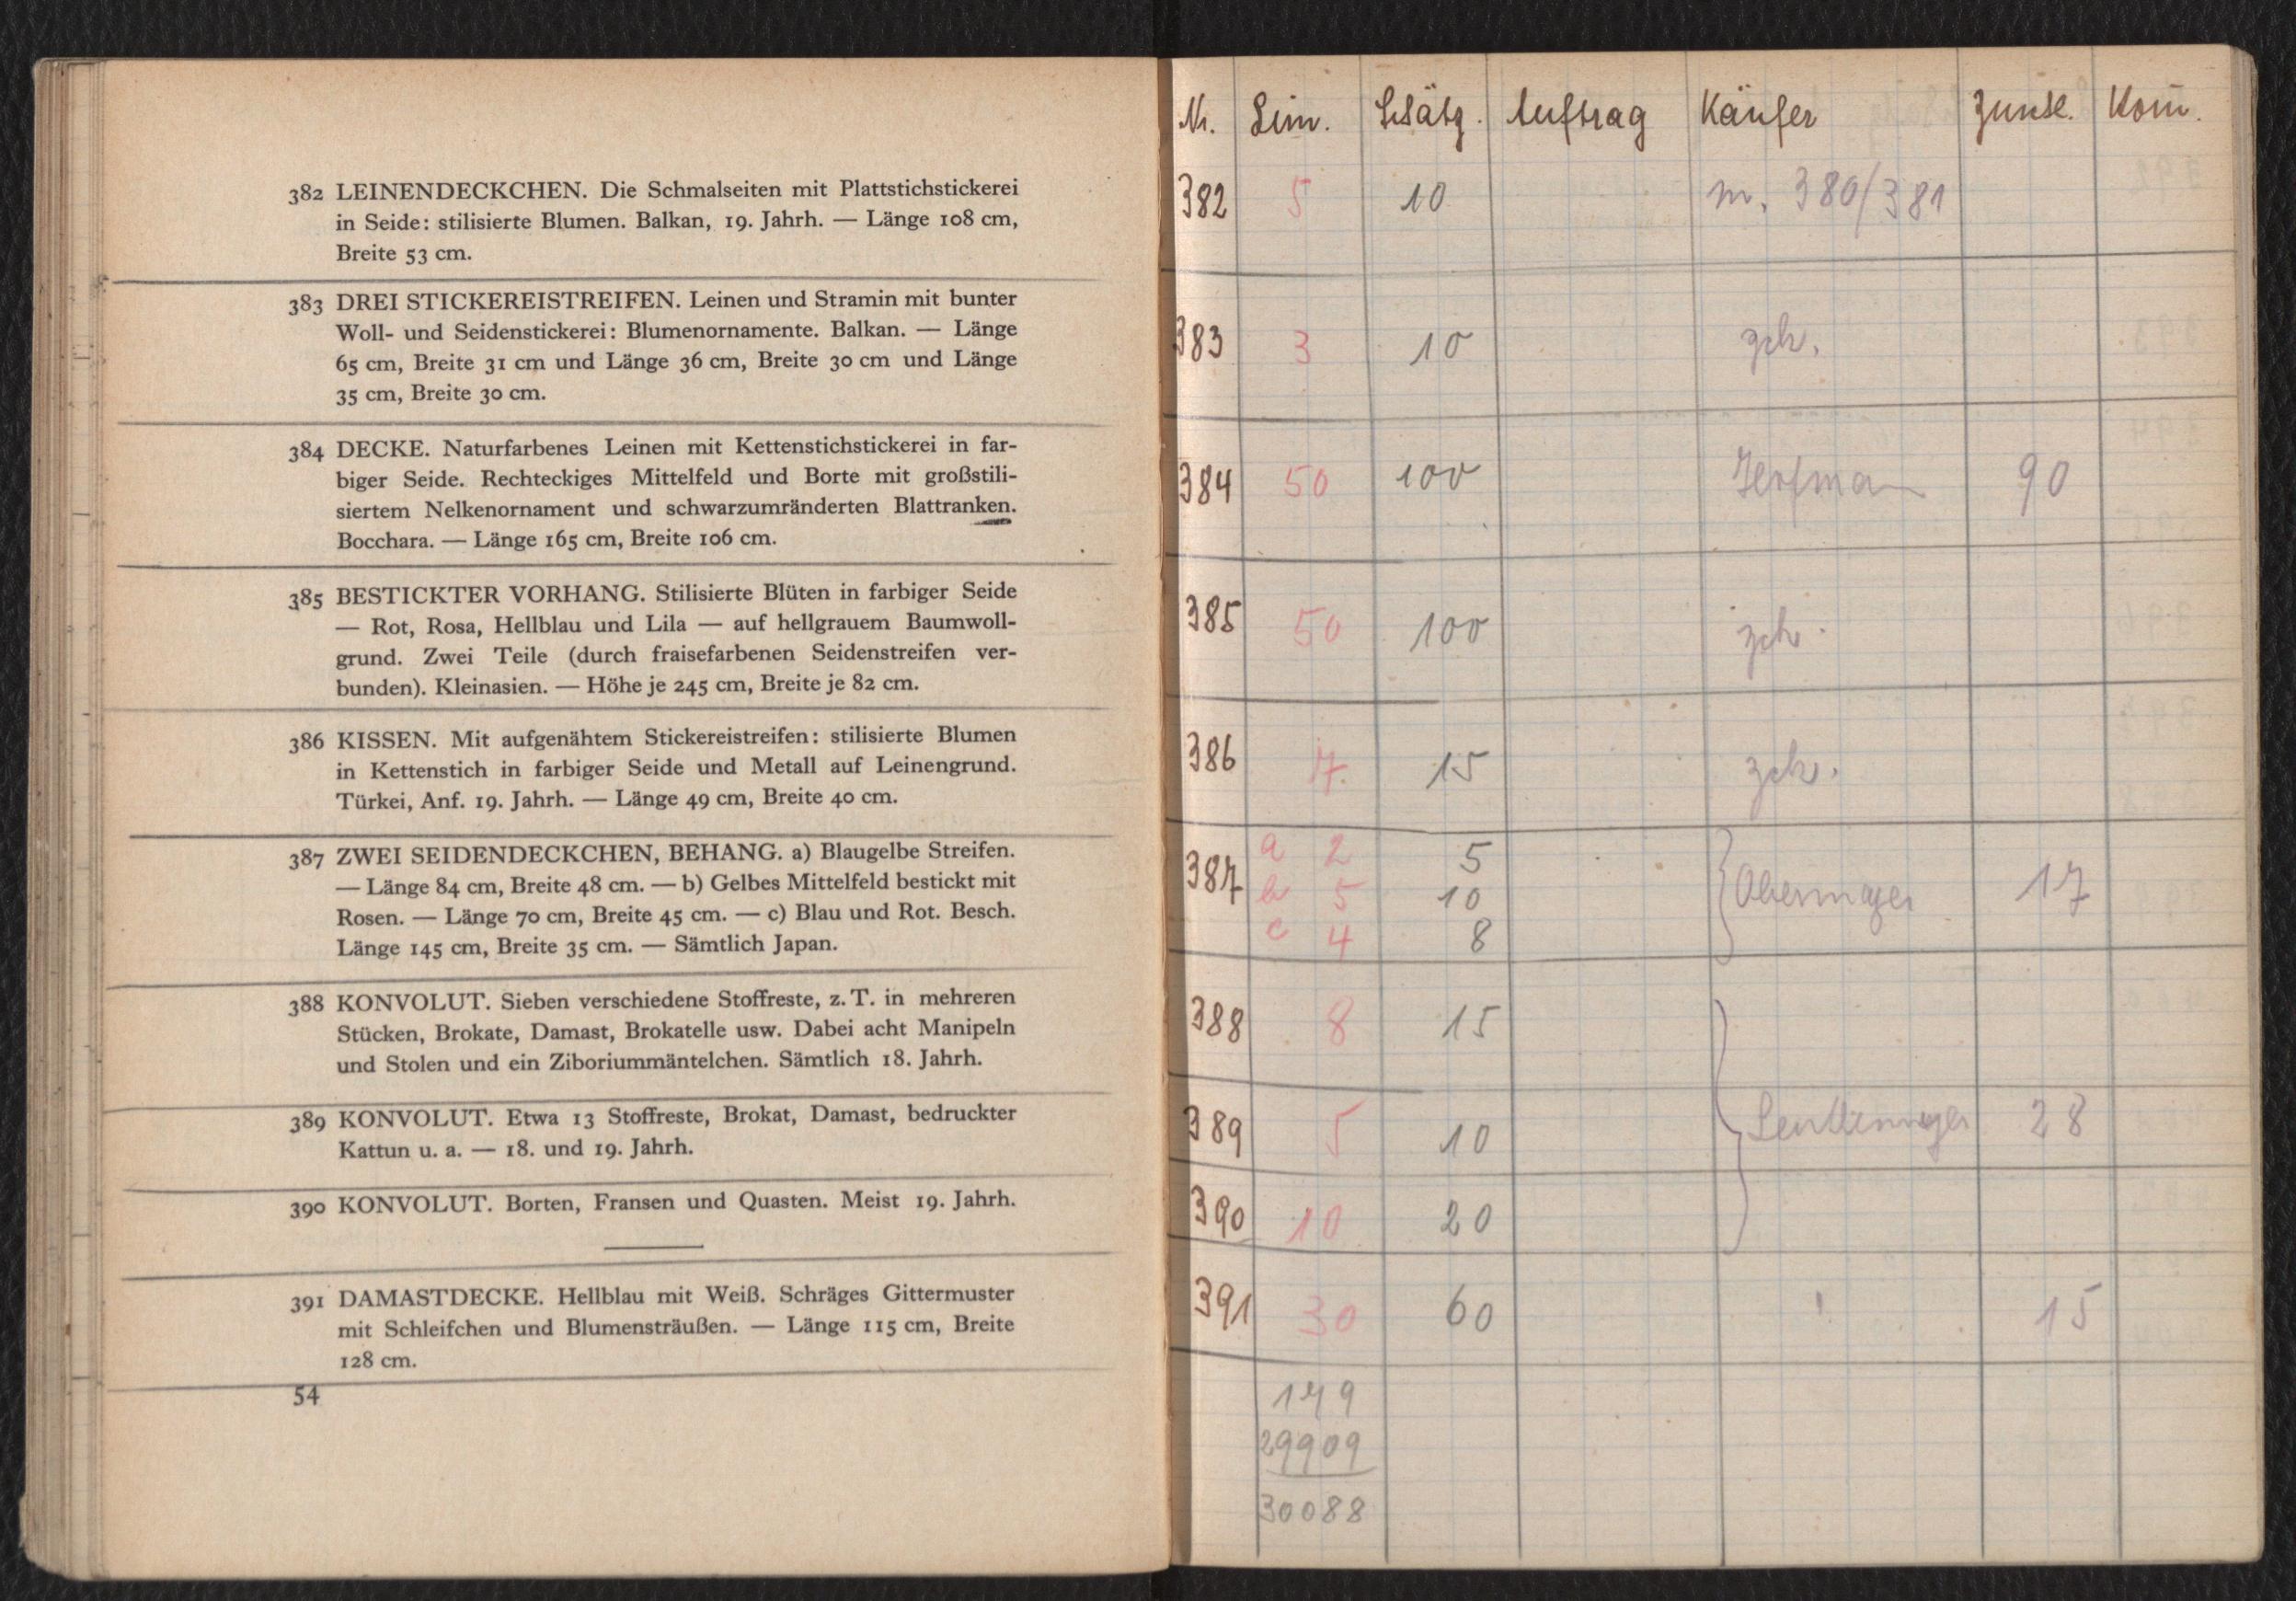 382 LEINENDECKCHEN. Die Schmalseiten mit Plattstichstickerei
in Seide: stilisierte Blumen. Balkan, 19. Jahrh. — Länge 108 cm,
Breite 53 cm.
383 DREI STICKEREISTREIFEN. Leinen und Stramin mit bunter
Woll- und Seidenstickerei: Blumenornamente. Balkan. — Länge
65 cm, Breite 31 cm und Länge 36 cm, Breite 30 cm und Länge
35 cm, Breite 30 cm.
384 DECKE. Naturfarbenes Leinen mit Kettenstichstickerei in far-
biger Seide. Rechteckiges Mittelfeld und Borte mit großstili-
siertem Nelkenornament und schwarzumränderten Blattranken.
Bocchara. — Länge 165 cm, Breite 106 cm.
385 BESTICKTER VORHANG. Stilisierte Blüten in farbiger Seide
— Rot, Rosa, Hellblau und Lila — auf hellgrauem Baumwoll-
grund. Zwei Teile (durch fraisefarbenen Seidenstreifen ver-
bunden). Kleinasien. — Höhe je 245 cm, Breite je 82 cm.
386 KISSEN. Mit aufgenähtem Stickereistreifen: stilisierte Blumen
in Kettenstich in farbiger Seide und Metall auf Leinengrund.
Türkei, Anf. 19. Jahrh. — Länge 49 cm, Breite 40 cm.
387 ZWEI SEIDENDECKCHEN, BEHANG. a) Blaugelbe Streifen.
— Länge 84 cm, Breite 48 cm. — b) Gelbes Mittelfeld bestickt mit
Rosen. — Länge 70 cm, Breite 45 cm. — c) Blau und Rot. Besch.
Länge 145 cm, Breite 35 cm. — Sämtlich Japan.
388 KONVOLUT. Sieben verschiedene Stoffreste, z. T. in mehreren
Stücken, Brokate, Damast, Brokatelle usw. Dabei acht Manipeln
und Stolen und ein Ziboriummäntelchen. Sämtlich 18. Jahrh.
389 KONVOLUT. Etwa 13 Stoffreste, Brokat, Damast, bedruckter
Kattun u. a. — 18. und 19. Jahrh.
390 KONVOLUT. Borten, Fransen und Quasten. Meist 19. Jahrh.
391 DAMASTDECKE. Hellblau mit Weiß. Schräges Gittermuster
mit Schleifchen und Blumensträußen. — Länge 115 cm, Breite
128 cm.
54
Nr. Lim. Schätz. Auftrag Käufer Zuschl. Kom.
382 5 10 m. 380/381
383 3 10 zch.
384 50 100 90
385 50 100 zch.
386 7. 15 zch.
387 a 2 5
b 5 10 Obermayer 17
c 4 8
388 8 15
389 5 10 28
390 10 20
391 30 60 15
179
29909
30088